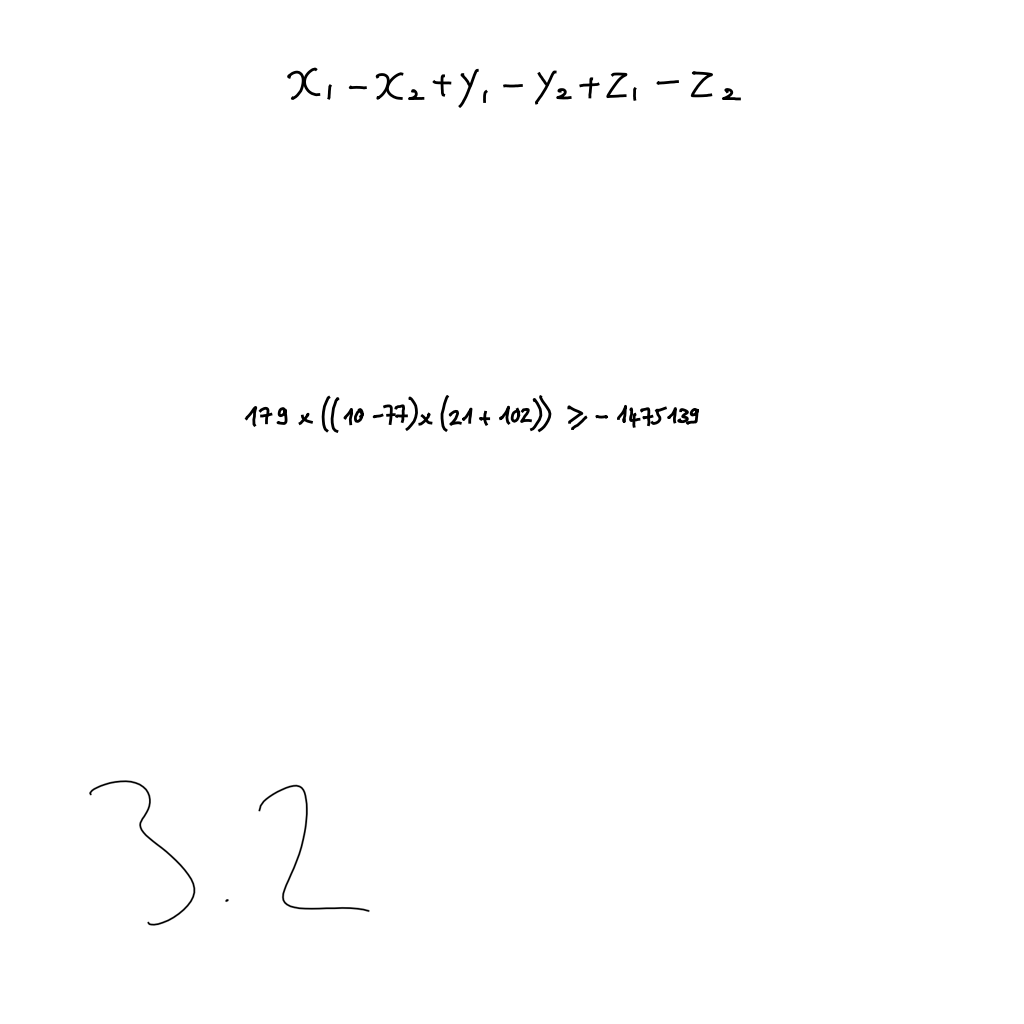 x₁ - x₂ + y₁ - y₂ + z₁ - z₂
179 × ((10 - 77) × (21 + 102)) ⩾ - 1475139
3.2